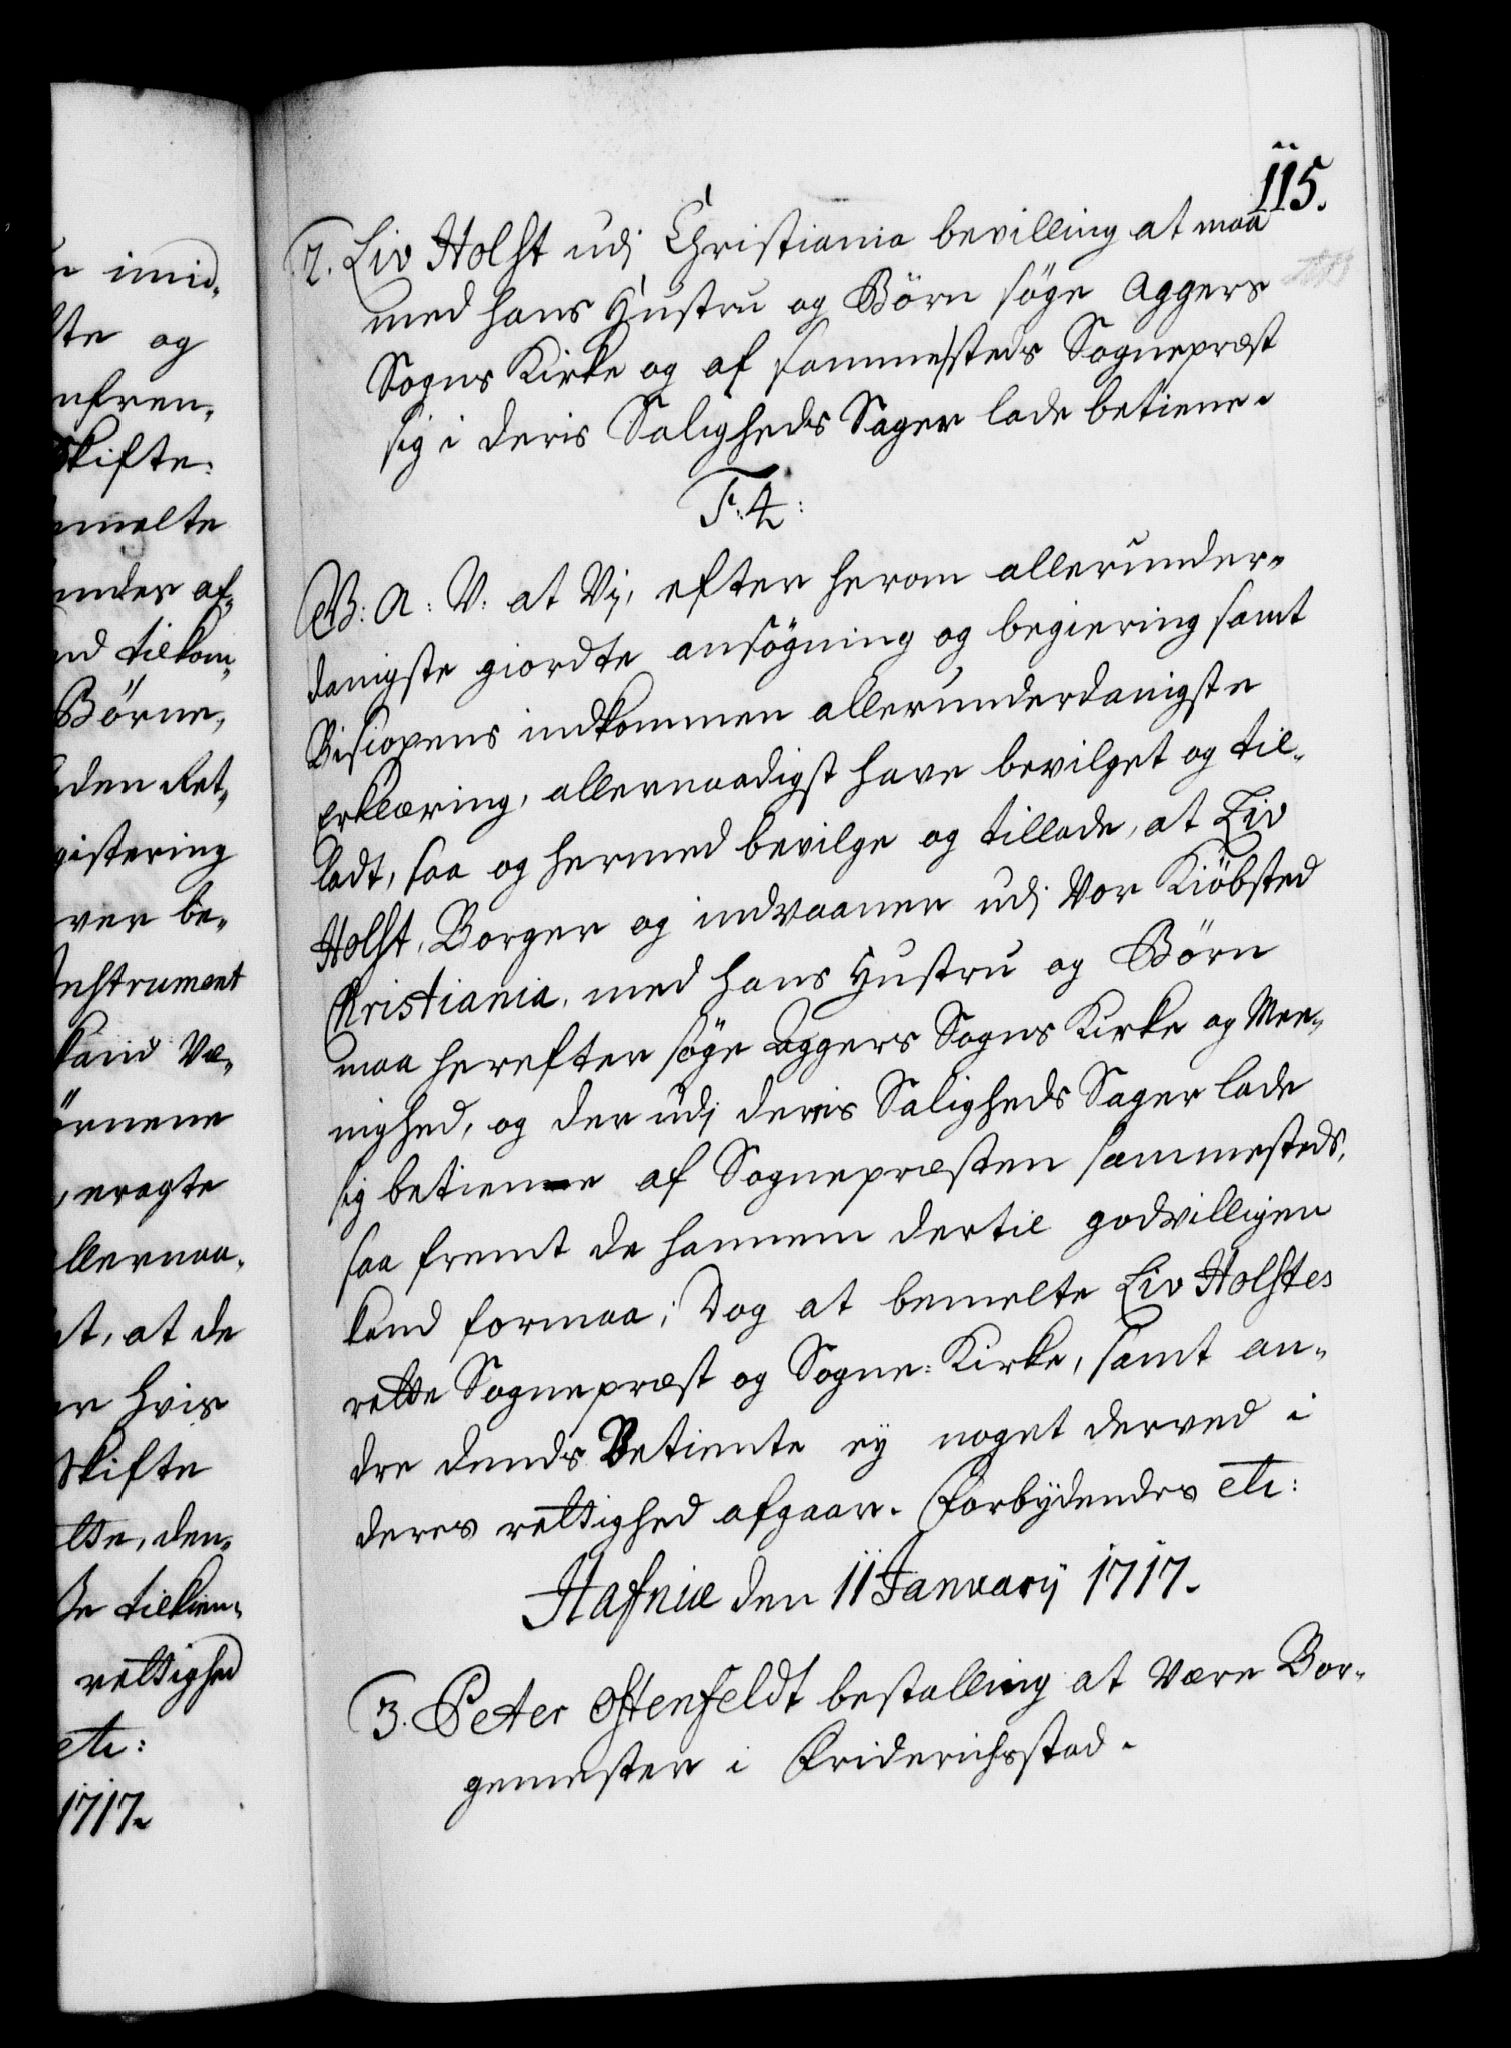 115.
2. Liv Holst udj Christiania bevilling at maa
med hans Hustru og Börn söge Aggers
Sogns Kirke og af sammesteds Sognepræst
sig i deris Saligheds Sager lade betiene.
F: 4:
G: A: V: at Vj, efter herom allerunder-
danigste giordte ansögning og begiering samt
Biscopens indkommen allerunderdanigste
Erklæring, allernaadigst have bevilget og til-
ladt, saa og hermed bevilge og tillade, at Liv
Holst, Borger og indvaaner udj Vor Kiöbsted
Christiania, med hans Hustru og Börn
maa herefter söge Aggers Sogns Kirke og Mee-
nighed, og der udj deris Saligheds Sager lade
sig betiene af Sognepræsten sammesteds,
saa fremt de hannem dertil godvilligen
kand formaa; Dog at bemelte Liv Holstes
rette Sognepræst og Sogne-Kirke, samt an-
dre dends Betiente ej noget derved i
deres rettighed afgaar. Forbydendes etc:
Hafniæ den 11 Januarij 1717.
3. Peter Ostenfeldt bestalling at være Bor-
gemester i Friderichsstad.
imid-
te og
nfren-
Skifte-
melte
under af-
nd tilkom-
Börne,
den Ret-
gistering
ver be-
Instrument
kand Væ-
örnene
eragte
llernaa-
t, at de
er hvis
Skifte
lte, den-
tilkien-
rettighed
etc:
1717.